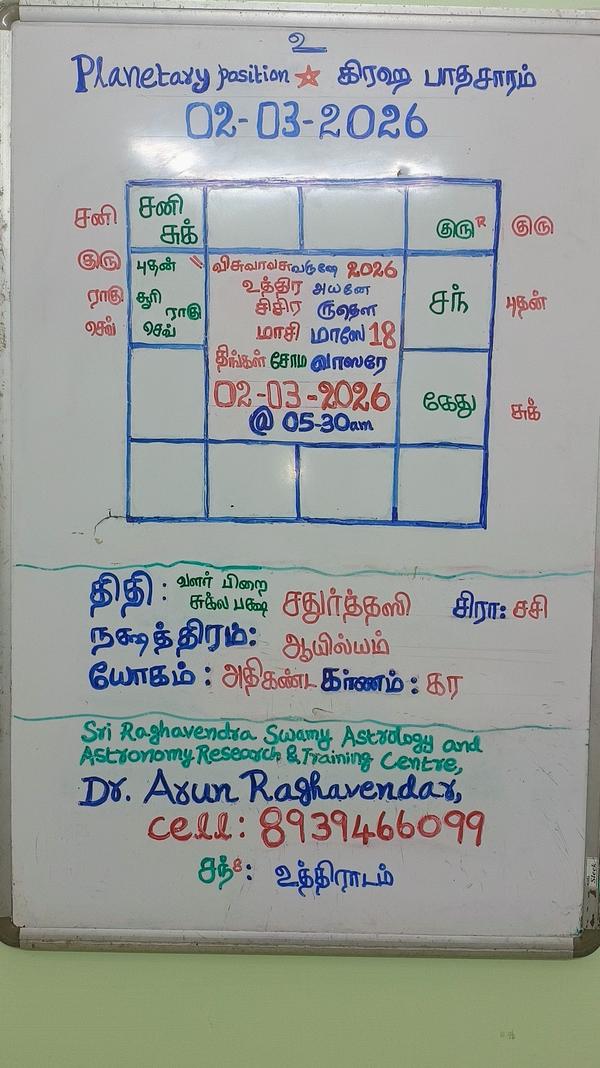 உ
Planetary position ☆ கிரஹ பாதசாரம்
02-03-2026
சனி
சனி
சுக்
குரு R
குரு
குரு
ராகு
செவ்
புதன்
சூரி
ராகு
செவ்
விசுவாவசுவருஷே 2026
உத்திர அயனே
சிசிர ருதௌ
மாசி மாஸே 18
திங்கள் சோம வாஸரே
02-03-2026
@ 05-30am
சந்
புதன்
கேது
சுக்
திதி : வளர் பிறை
சுக்ல பக்ஷ சதுர்த்தஸி சிரா: சசி
நக்ஷத்திரம்: ஆயில்யம்
யோகம் : அதிகண்ட கர்ணம் : கர
Sri Raghavendra Swamy Astrology and
Astronomy Research & Training Centre,
Dr. Arun Raghavendar,
cell: 8939466099
சந் 8: உத்திராடம்